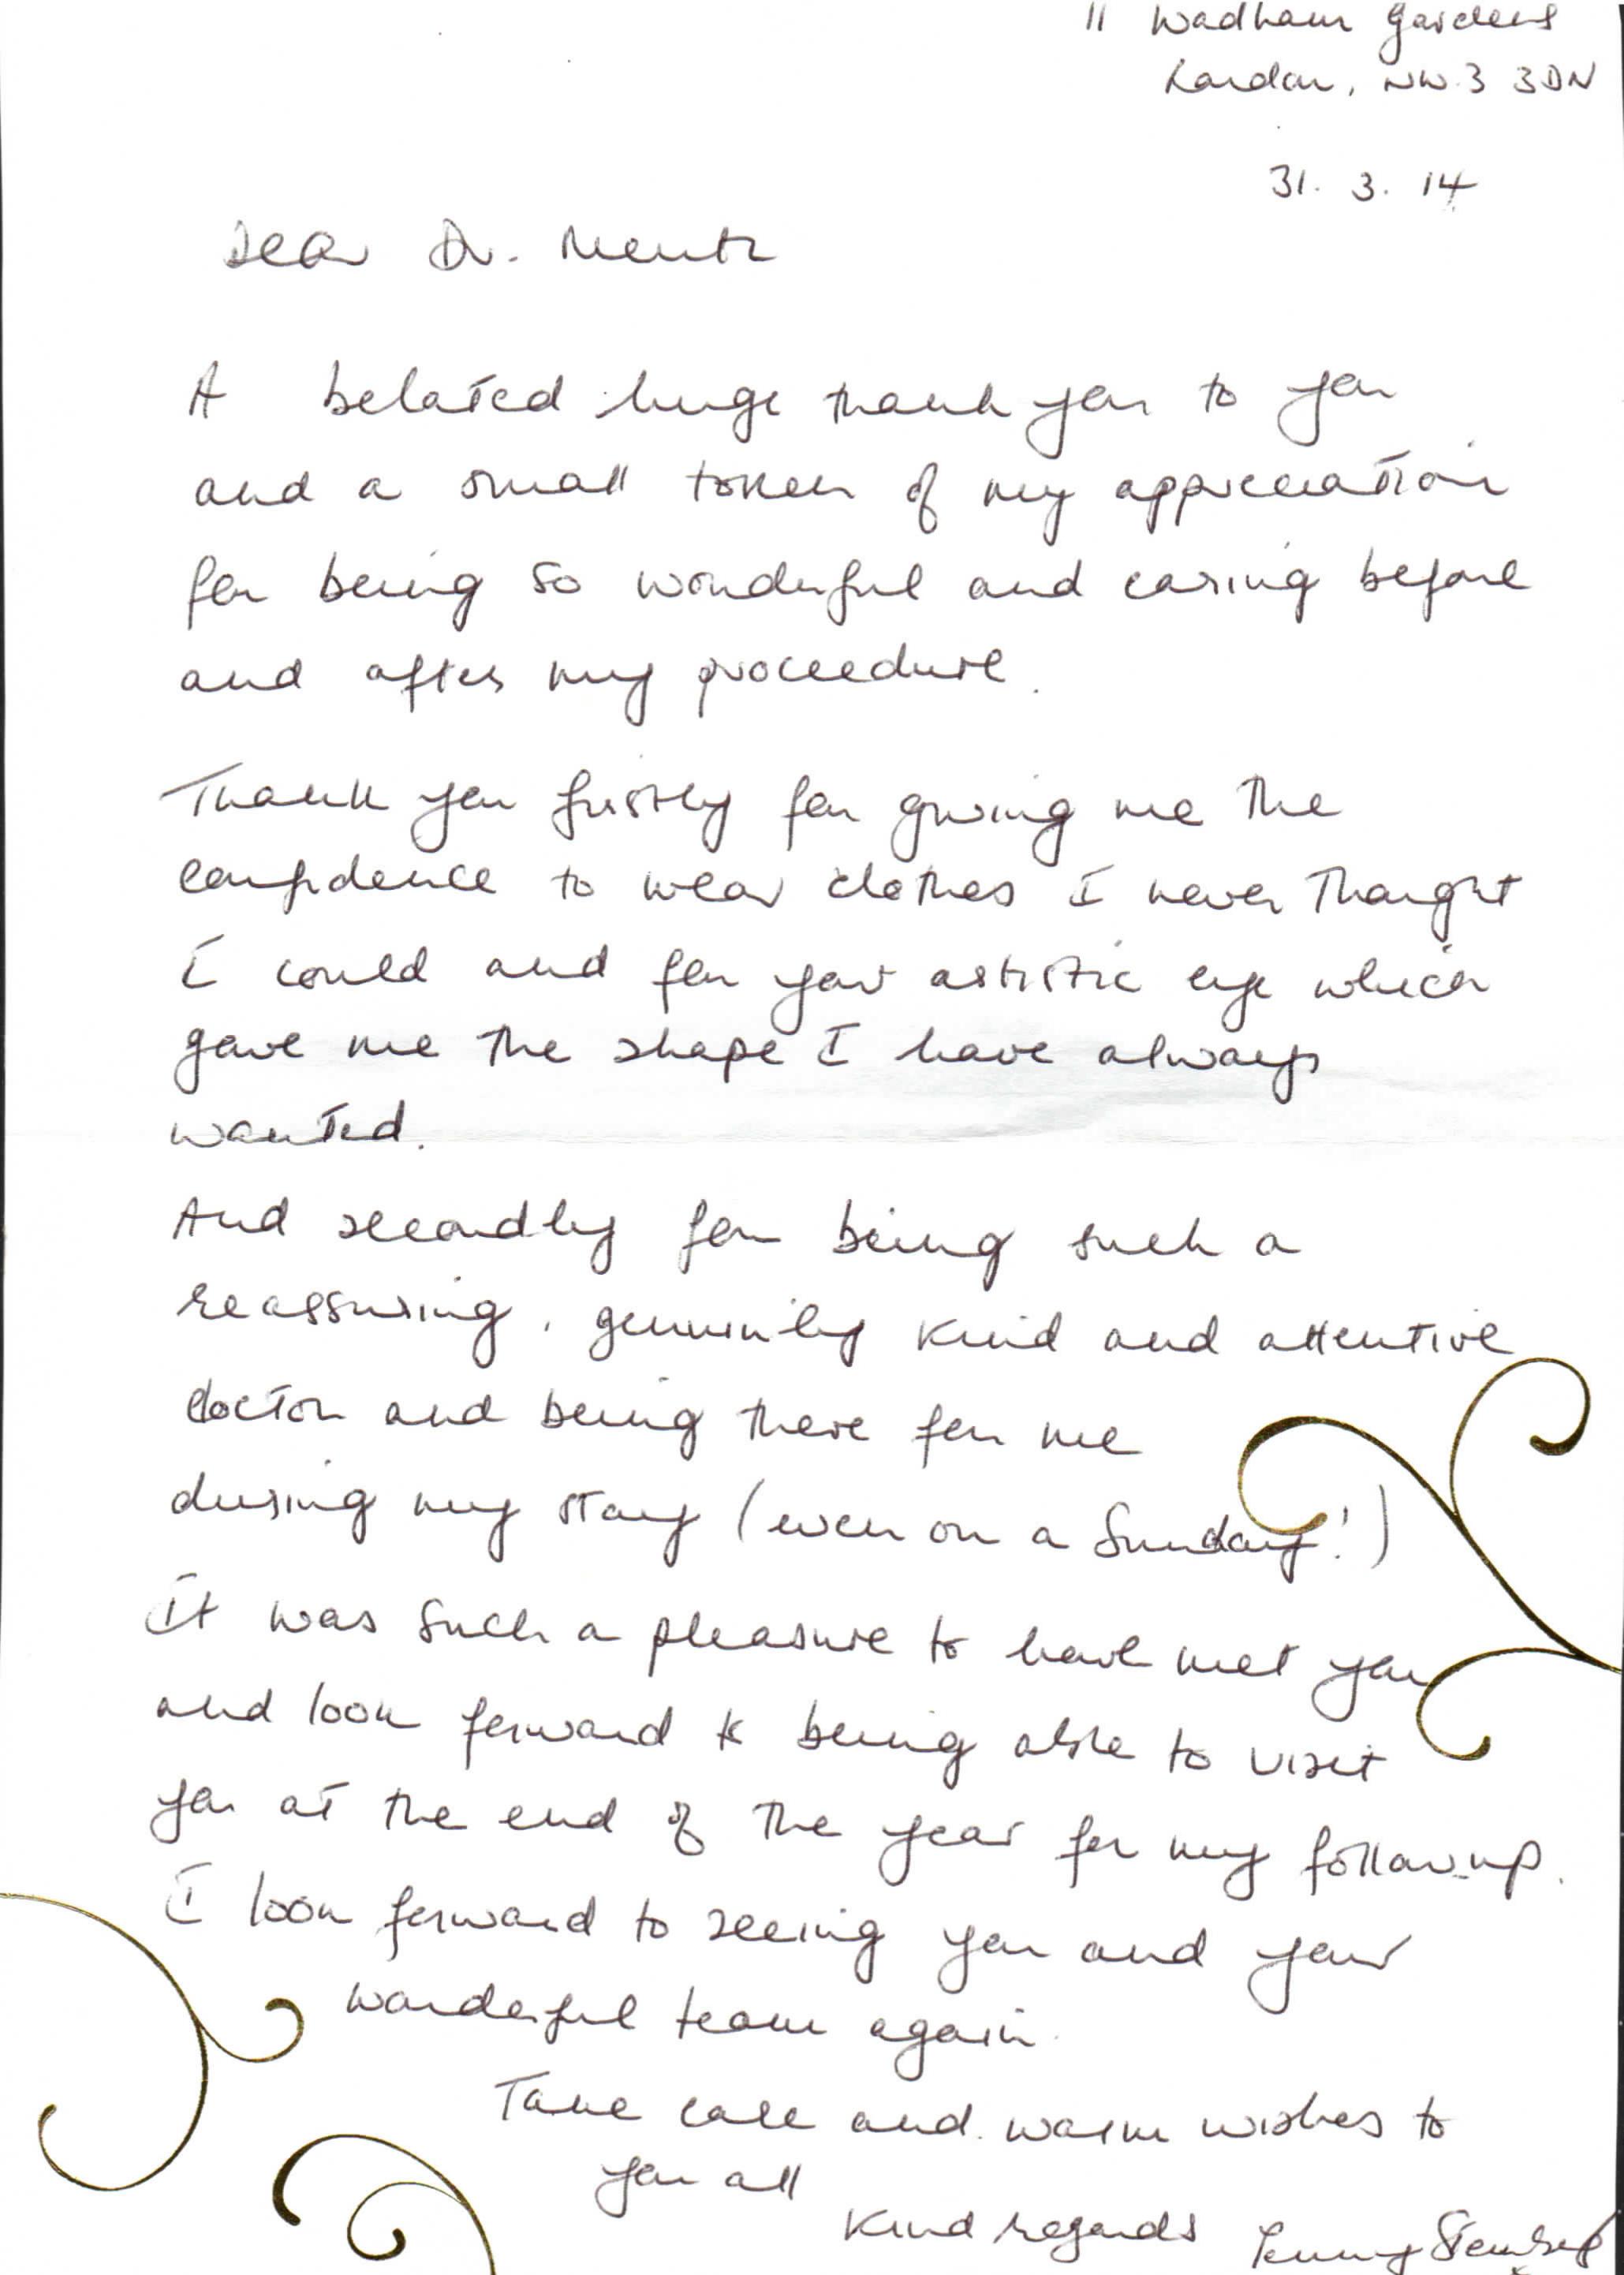 11 Wadham Gardens
London, NW.3 3DN
31. 3. 14
Dear Dr. Mentz
A belated huge thank you to you
and a small token of my appreciation
for being so wonderful and caring before
and after my proceedure.
Thank you firstly for giving me the
confidence to wear clothes I never thought
I could and for your artistic eye which
gave me the shape I have always
wanted.
And secondly for being such a
reassuring, genuinly kind and attentive
doctor and being there for me
during my stay (even on a Sunday!)
It was such a pleasure to have met you
and look forward to being able to visit
you at the end of the year for my follow-up.
I look forward to seeing you and your
wonderful team again.
Take care and warm wishes to
you all
Kind regards